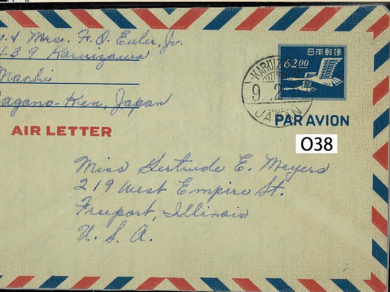 & Mrs. F. D. Euler, Jr.
439 Karuizawa
Machi
Nagano-Ken, Japan
AIR LETTER
日本郵便
62.00
KARUIZ
9. 2
JAPAN
PAR AVION
O38
Miss Gertrude E. Meyers
219 West Empire St.
Freeport, Illinois
U. S. A.